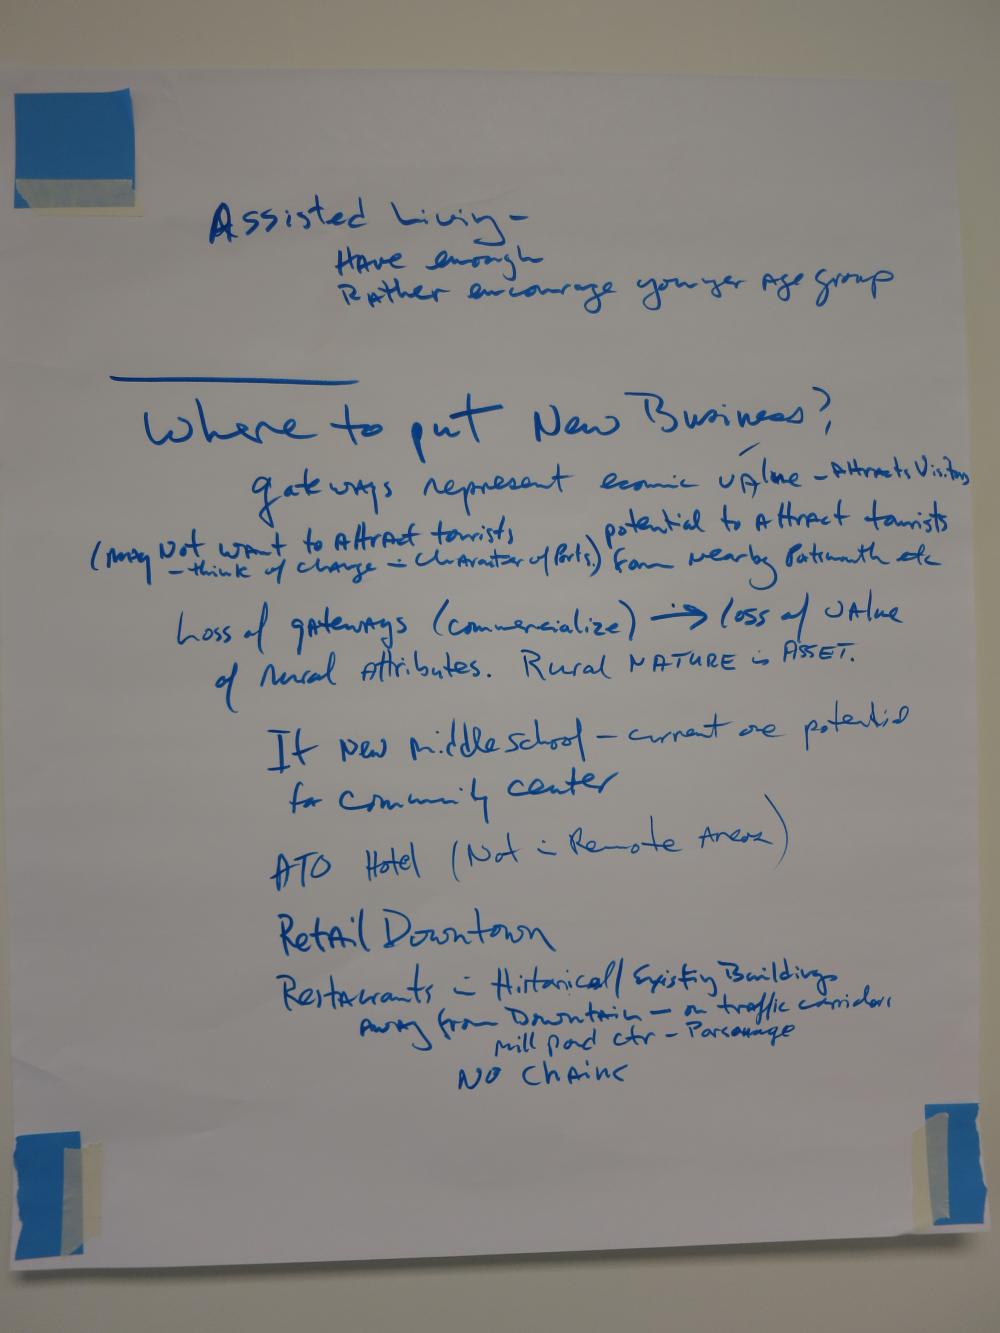 Assisted Living -
Have enough
Rather encourage younger age group
Where to put New Business?
gateways represent econic value - Attracts Visitors
potential to Attract tourists
from nearby Portsmouth etc
(may Not want to Attract tourists
- think of change in Character of Ports.)
Loss of gateways (commercialize) → loss of value
of rural Attributes. Rural NATURE is ASSET.
If New Middle School - current one potential
for Community center
ATO Hotel (Not in Remote Areas)
Retail Downtown
Restaurants in Historical/Existing Buildings
Away from Downtown - on traffic corridors
Mill Pond Ctr - Parsonage
NO Chains